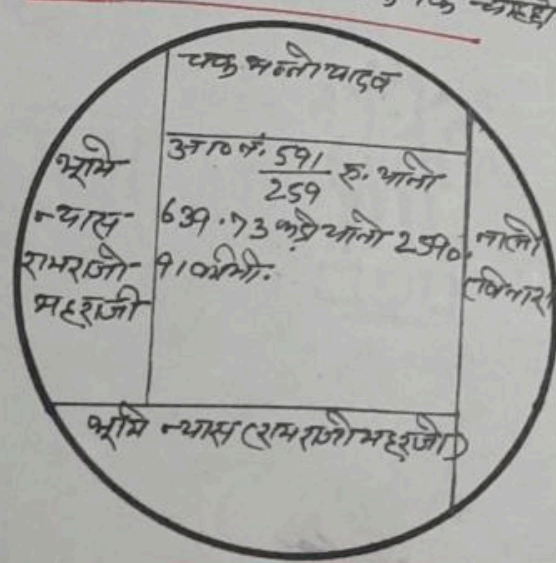 चक मन्तो यादव
भूमि
न्यास
रामराजी
महराजी
आ०नं. 591/259 रु. यानी
639.73 कड़ी यानी 2590.
91 वर्गमी.
नाली
भूमि न्यास (रामराजी महराजी)